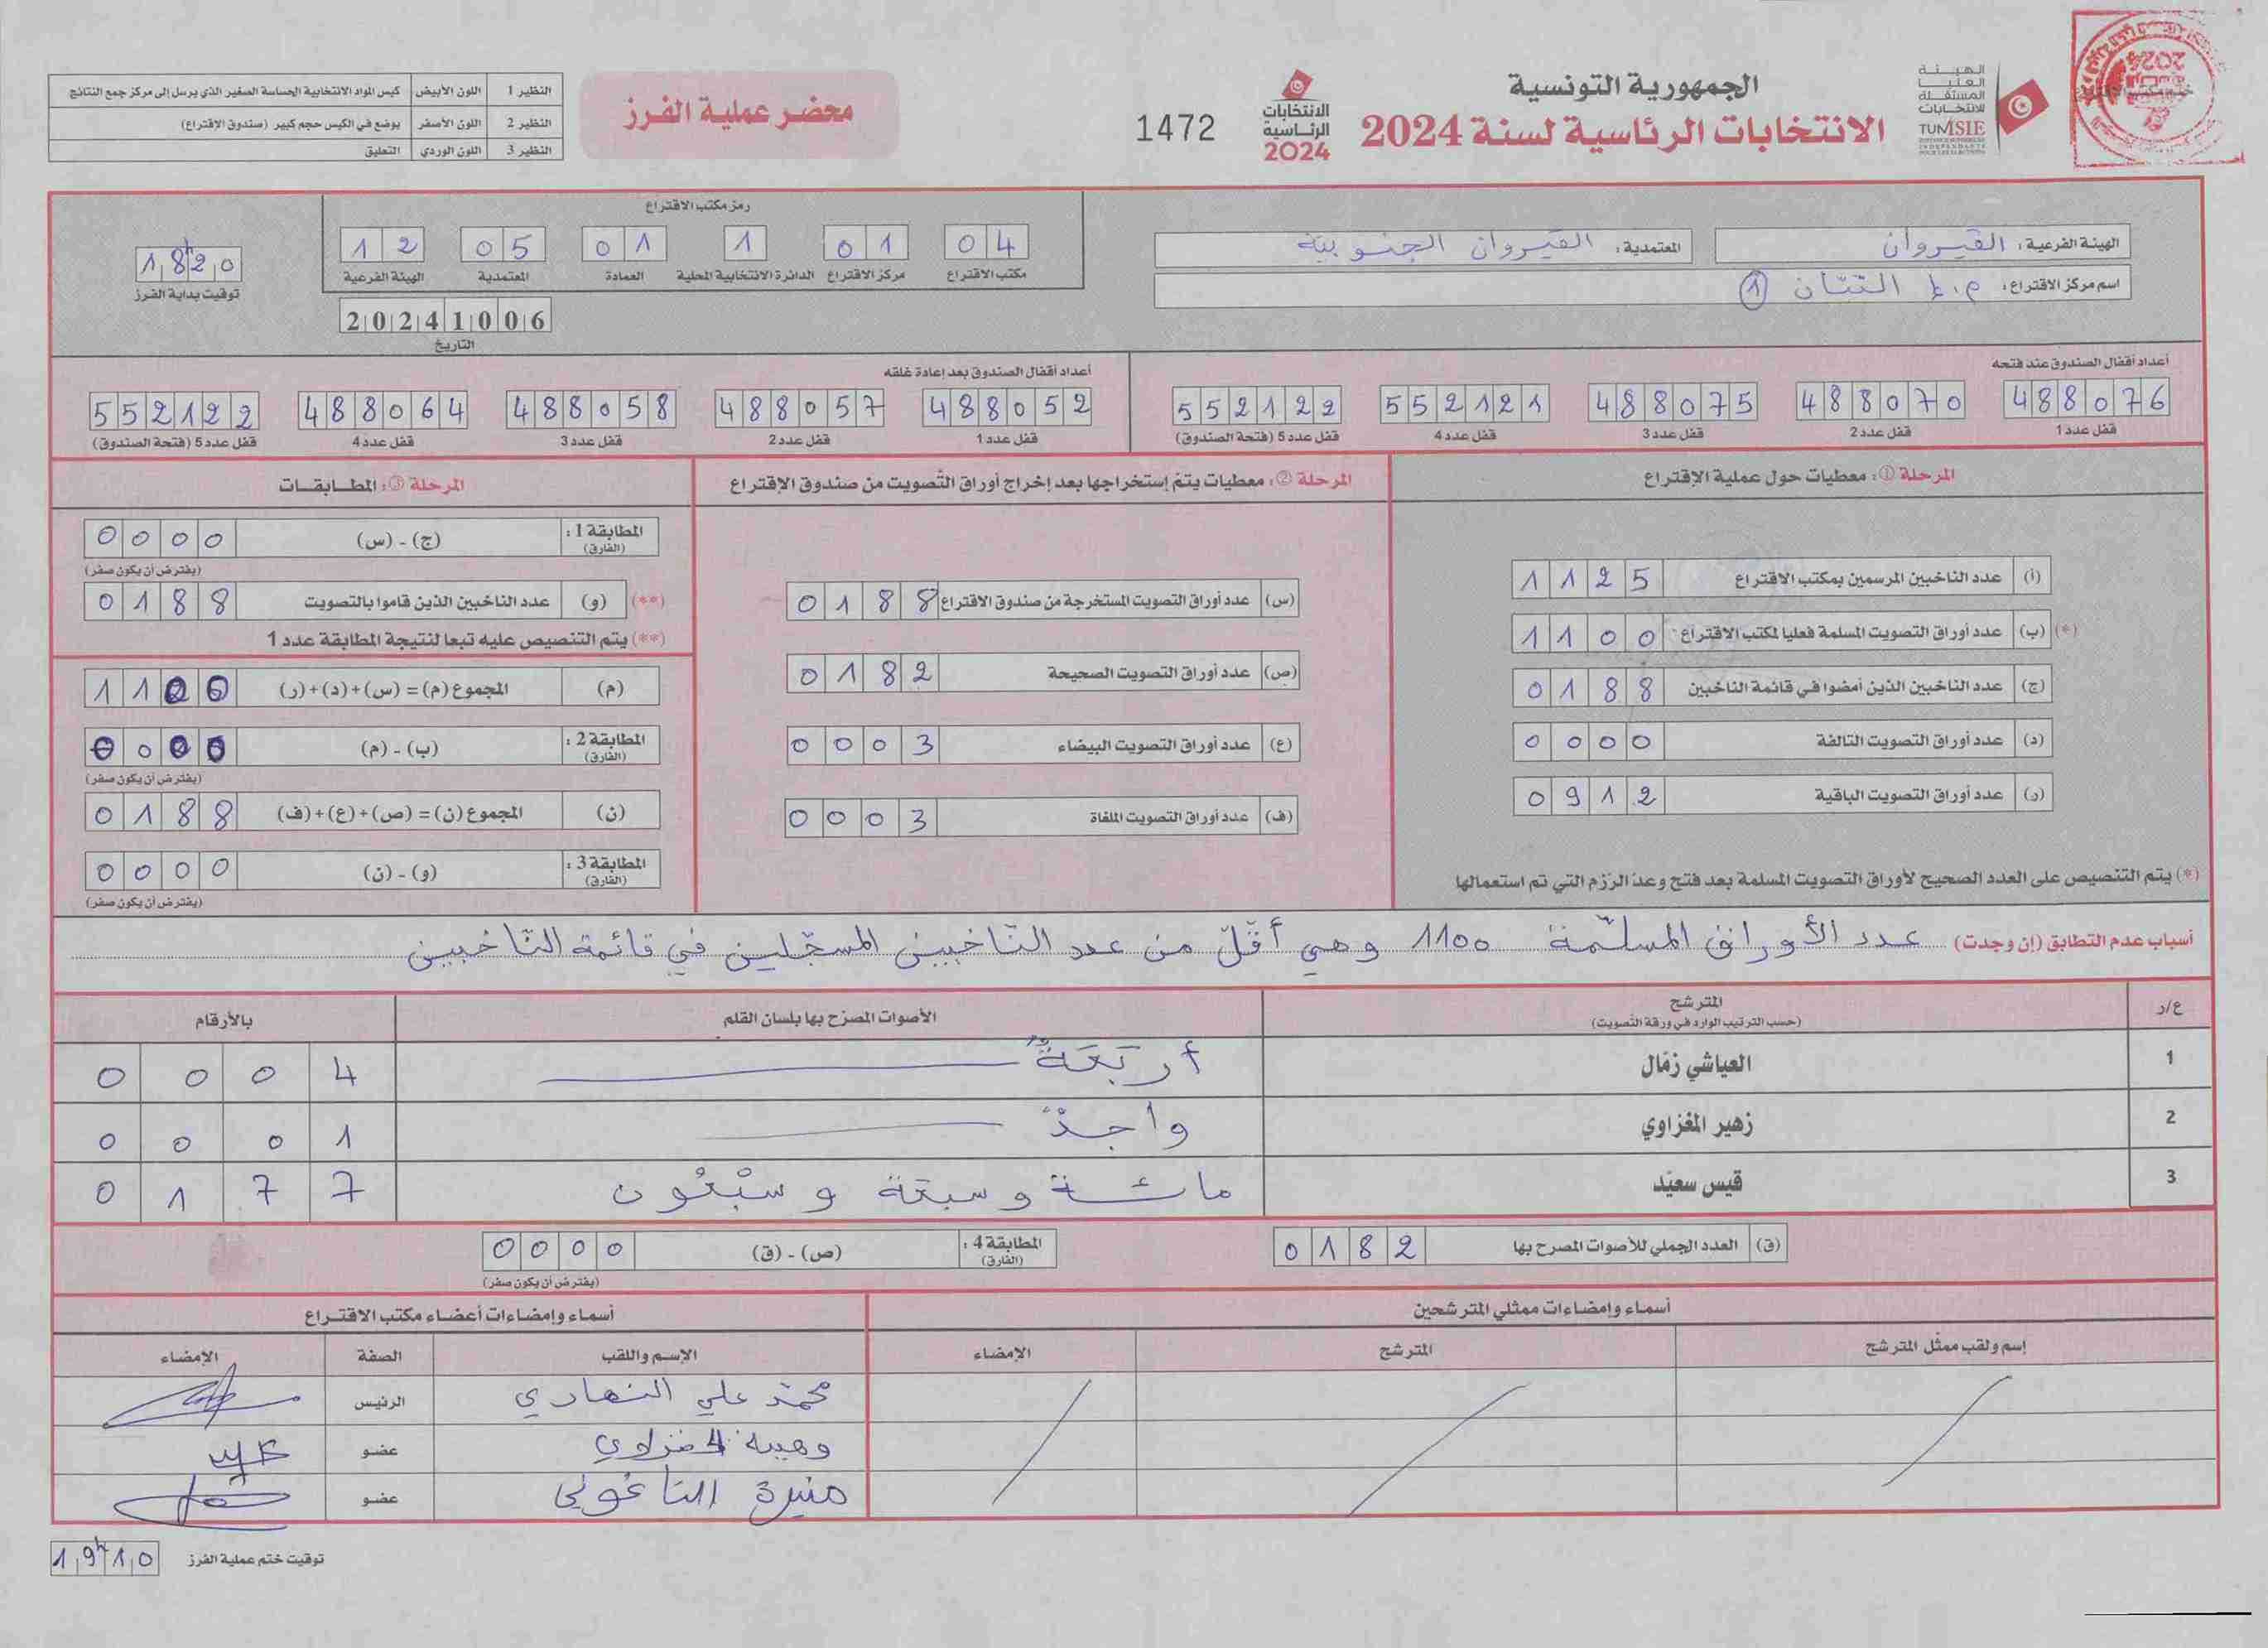 الجمهورية التونسية
الانتخابات الرئاسية لسنة 2024
الهيئة العليا المستقلة للانتخابات
TUNISIE
الانتخابات الرئاسية 2024
1472
محضر عملية الفرز
النظير 1 اللون الأبيض كيس المواد الانتخابية الحساسة الصغير الذي يرسل إلى مركز جمع النتائج
النظير 2 اللون الأصفر يوضع في الكيس حجم كبير (صندوق الإقتراع)
النظير 3 اللون الوردي التعليق
الهيئة الفرعية: القيروان
المعتمدية: القيروان الجنوبية
اسم مركز الاقتراع: م.إ. التتان 1
رمز مكتب الاقتراع
04 01 1 01 05 12
مكتب الاقتراع مركز الاقتراع الدائرة الانتخابية المحلية العمادة المعتمدية الهيئة الفرعية
20241006
التاريخ
18h20
توقيت بداية الفرز
أعداد أقفال الصندوق عند فتحه
488076 488070 488075 552121 552122
قفل عدد 1 قفل عدد 2 قفل عدد 3 قفل عدد 4 قفل عدد 5 (فتحة الصندوق)
أعداد أقفال الصندوق بعد إعادة غلقه
488052 488057 488058 488064 552122
قفل عدد 1 قفل عدد 2 قفل عدد 3 قفل عدد 4 قفل عدد 5 (فتحة الصندوق)
المرحلة ①: معطيات حول عملية الإقتراع
(أ) عدد الناخبين المرسمين بمكتب الاقتراع 1125
(*) (ب) عدد أوراق التصويت المسلمة فعليا لمكتب الاقتراع 1100
(ج) عدد الناخبين الذين أمضوا في قائمة الناخبين 0188
(د) عدد أوراق التصويت التالفة 0000
(ر) عدد أوراق التصويت الباقية 0912
(*) يتم التنصيص على العدد الصحيح لأوراق التصويت المسلمة بعد فتح وعد الرزم التي تم استعمالها
المرحلة ②: معطيات يتم إستخراجها بعد إخراج أوراق التصويت من صندوق الإقتراع
(س) عدد أوراق التصويت المستخرجة من صندوق الاقتراع 0188
(ص) عدد أوراق التصويت الصحيحة 0182
(ع) عدد أوراق التصويت البيضاء 0003
(ف) عدد أوراق التصويت الملغاة 0003
المرحلة ③: المطابقات
المطابقة 1: (الفارق) (ج) - (س) 0000
(يفترض أن يكون صفر)
(**) (و) عدد الناخبين الذين قاموا بالتصويت 0188
(**) يتم التنصيص عليه تبعا لنتيجة المطابقة عدد 1
(م) المجموع (م) = (س) + (د) + (ر) 1100
المطابقة 2: (الفارق) (ب) - (م) 0000
(يفترض أن يكون صفر)
(ن) المجموع (ن) = (ص) + (ع) + (ف) 0188
المطابقة 3: (الفارق) (و) - (ن) 0000
(يفترض أن يكون صفر)
أسباب عدم التطابق (إن وجدت) عدد الأوراق المسلّمة 1100 وهي أقلّ من عدد النّاخبين المسجّلين في قائمة النّاخبين
ع/ر المترشح (حسب الترتيب الوارد في ورقة التصويت) الأصوات المصرّح بها بلسان القلم بالأرقام
1 العياشي زمّال أربعة 0004
2 زهير المغزاوي واحد 0001
3 قيس سعيّد مائة وسبعة وسبعون 0177
(ق) العدد الجملي للأصوات المصرح بها 0182
المطابقة 4: (الفارق) (ص) - (ق) 0000
(يفترض أن يكون صفر)
أسماء وإمضاءات ممثلي المترشحين
إسم ولقب ممثّل المترشح المترشح الإمضاء
أسماء وإمضاءات أعضاء مكتب الاقتراع
الإسم واللقب الصفة الإمضاء
محمد علي النهاري الرئيس
وهيبة عضو
منيرة عضو
توقيت ختم عملية الفرز 19h10